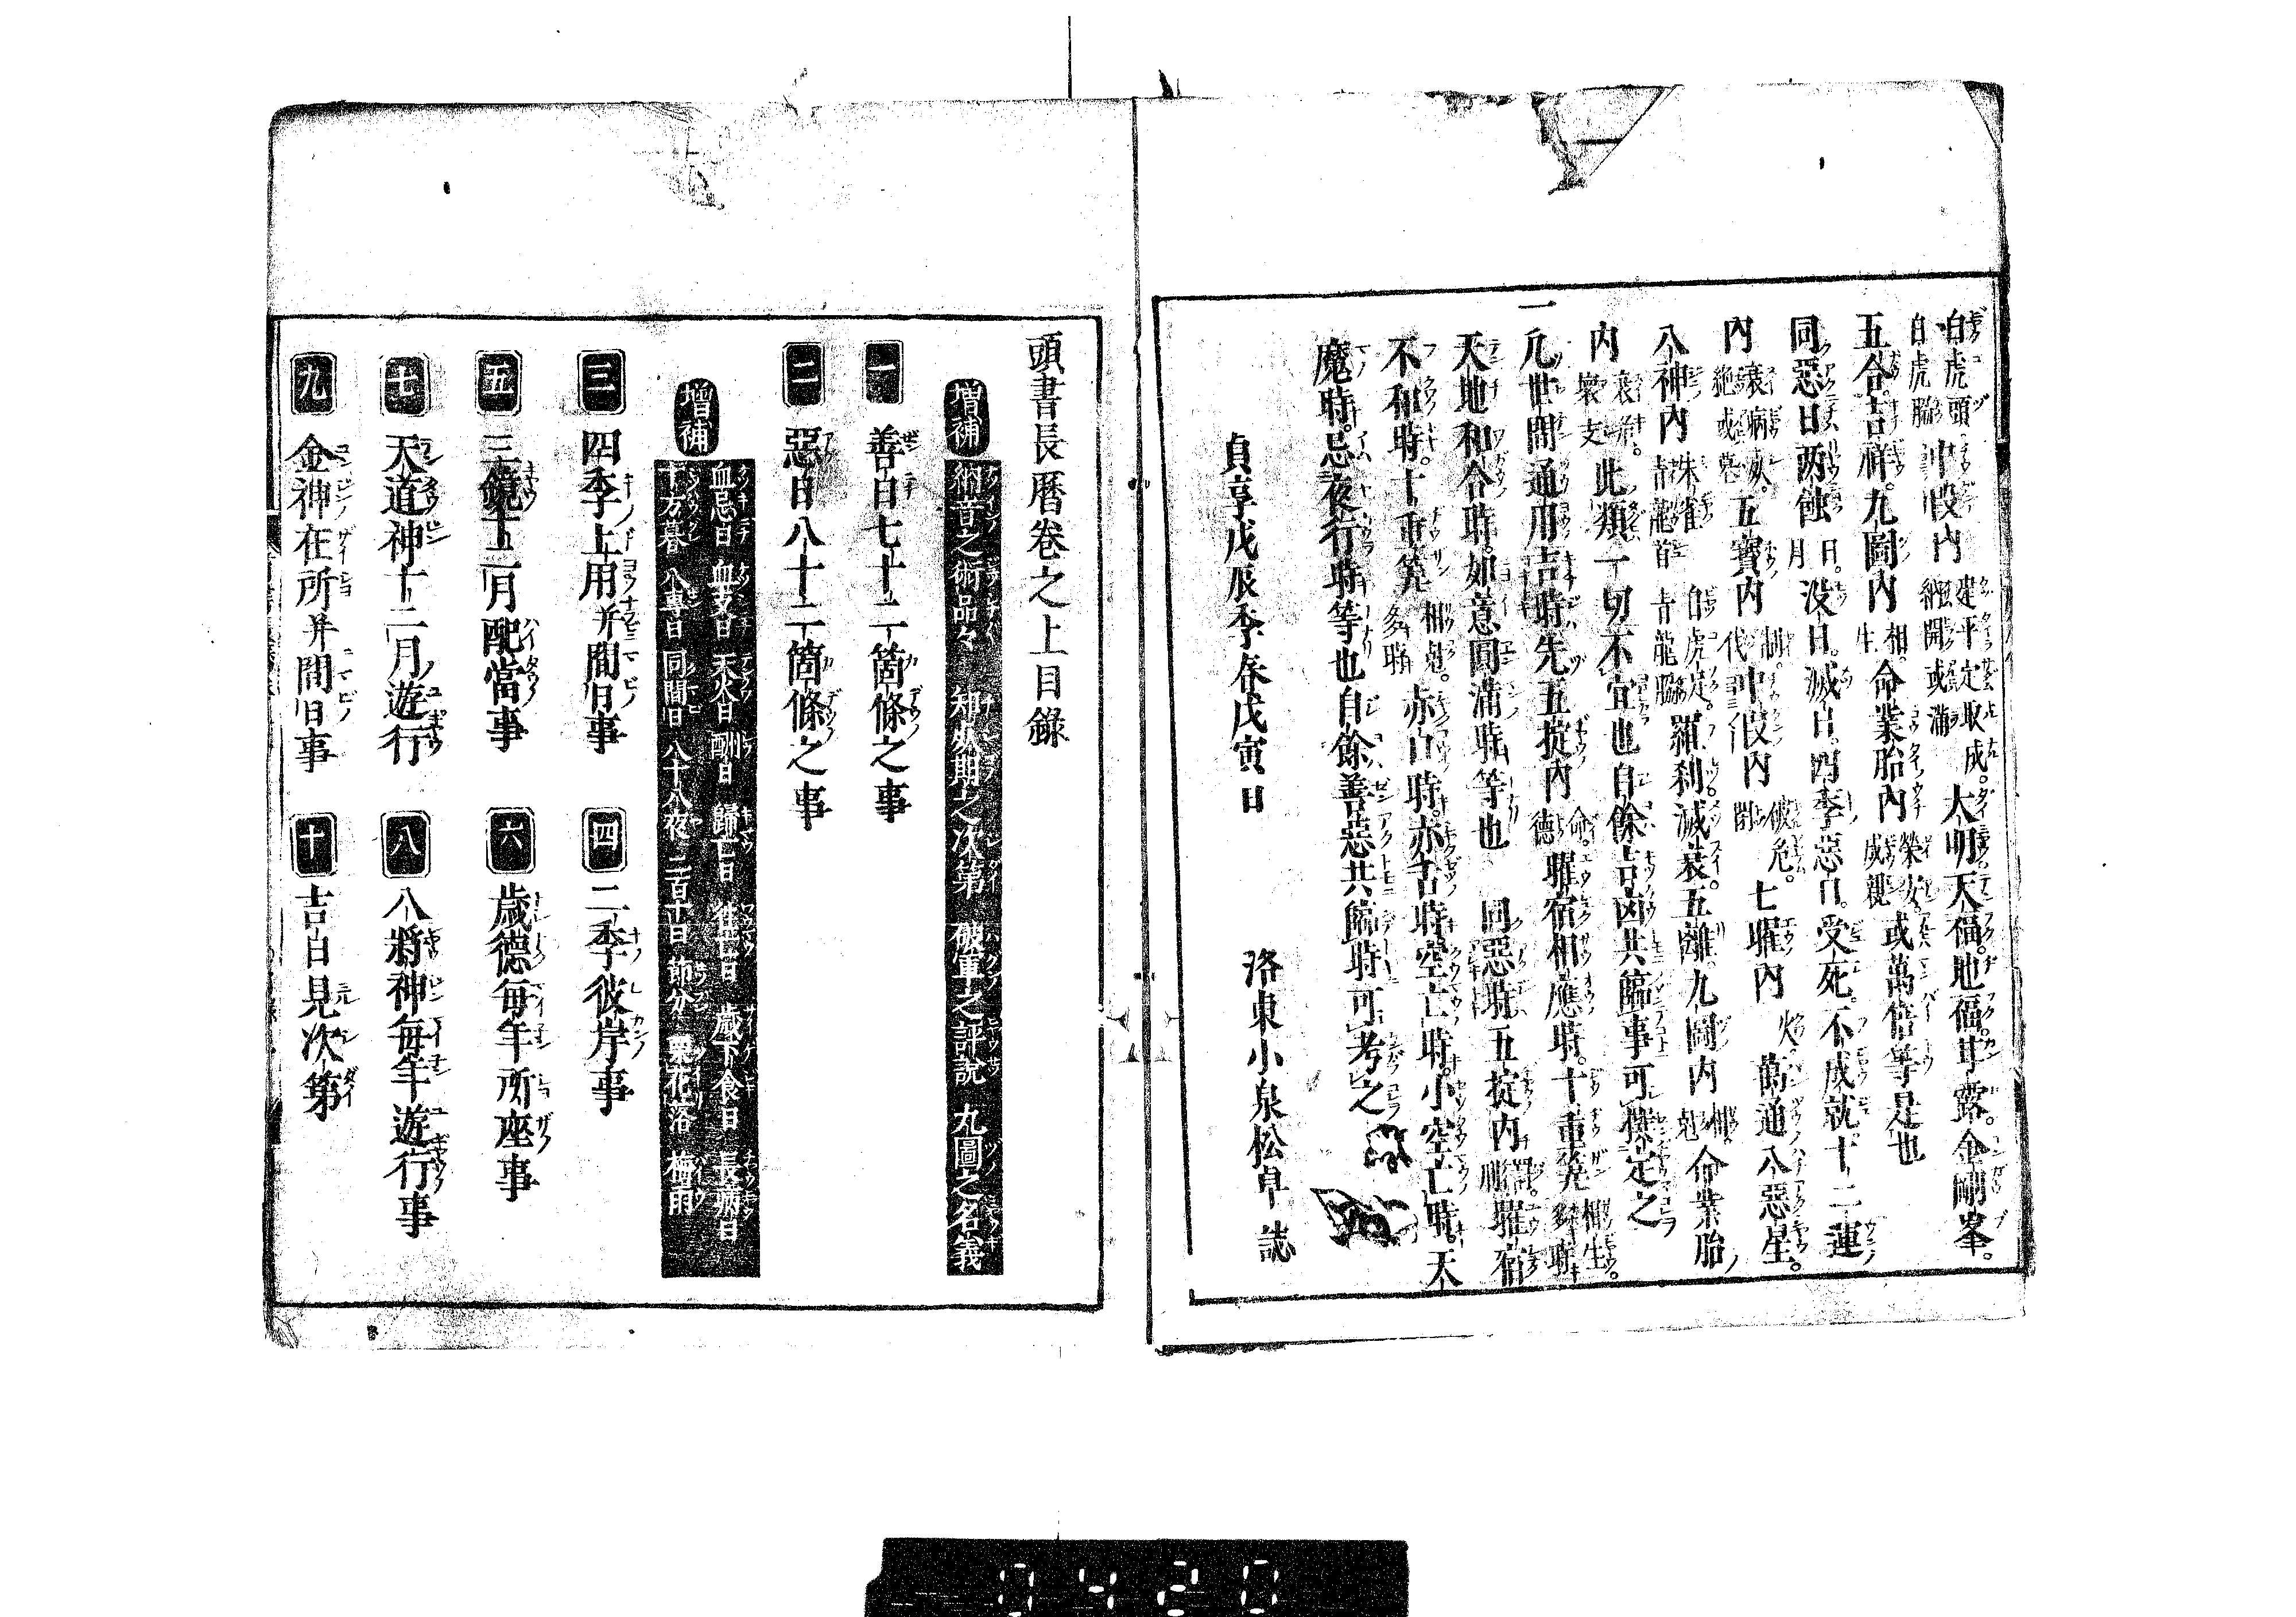 白虎頭白虎脇中段内建平定取成納開或滿太明天福地福甘露金剛峯
五合吉祥九圖内相生命業胎内榮安成親或萬倍等是也
同惡日両蝕日月没日滅日四季惡日受死不成就十二運
内衰病絶或墓五寳内制代中段内破危閉七曜内火萬通八惡星
八神内朱雀青龍首白虎足青龍脇羅刹滅衰五離九圖内相剋命業胎
内衰危壞支此類一切不宜也自餘吉凶共臨事可撰定之
一凡世間通用吉時先五掟内命德曜宿相應時十重筭相生多聯
天地和合時如意圓滿時等也同惡時五掟内曜宿
不和時十重筭相剋多聯赤口時赤舌時空亡時小空亡時天
魔時忌夜行時等也自餘善惡共臨時可考之
貞享戊辰季春戊寅日
洛東小泉松卓誌
頭書長暦巻之上目錄
増補 納音之術品々 知死期之次第 破軍之評説 九圖之名義
一 善日七十二箇條之事
二 惡日八十二箇條之事
増補 血忌日 血支日 天火日 歸亡日 往亡日 歳下食日 長病日
十方暮 八專日 同間日 八十八夜 二百十日 節分 栗花落 梅雨
三 四季土用并間日事
四 二季彼岸事
五 三鏡十二月配當事
六 歳德毎年所座事
七 天道神十二月遊行
八 八將神毎年遊行事
九 金神在所并間日事
十 吉日見次第
0420